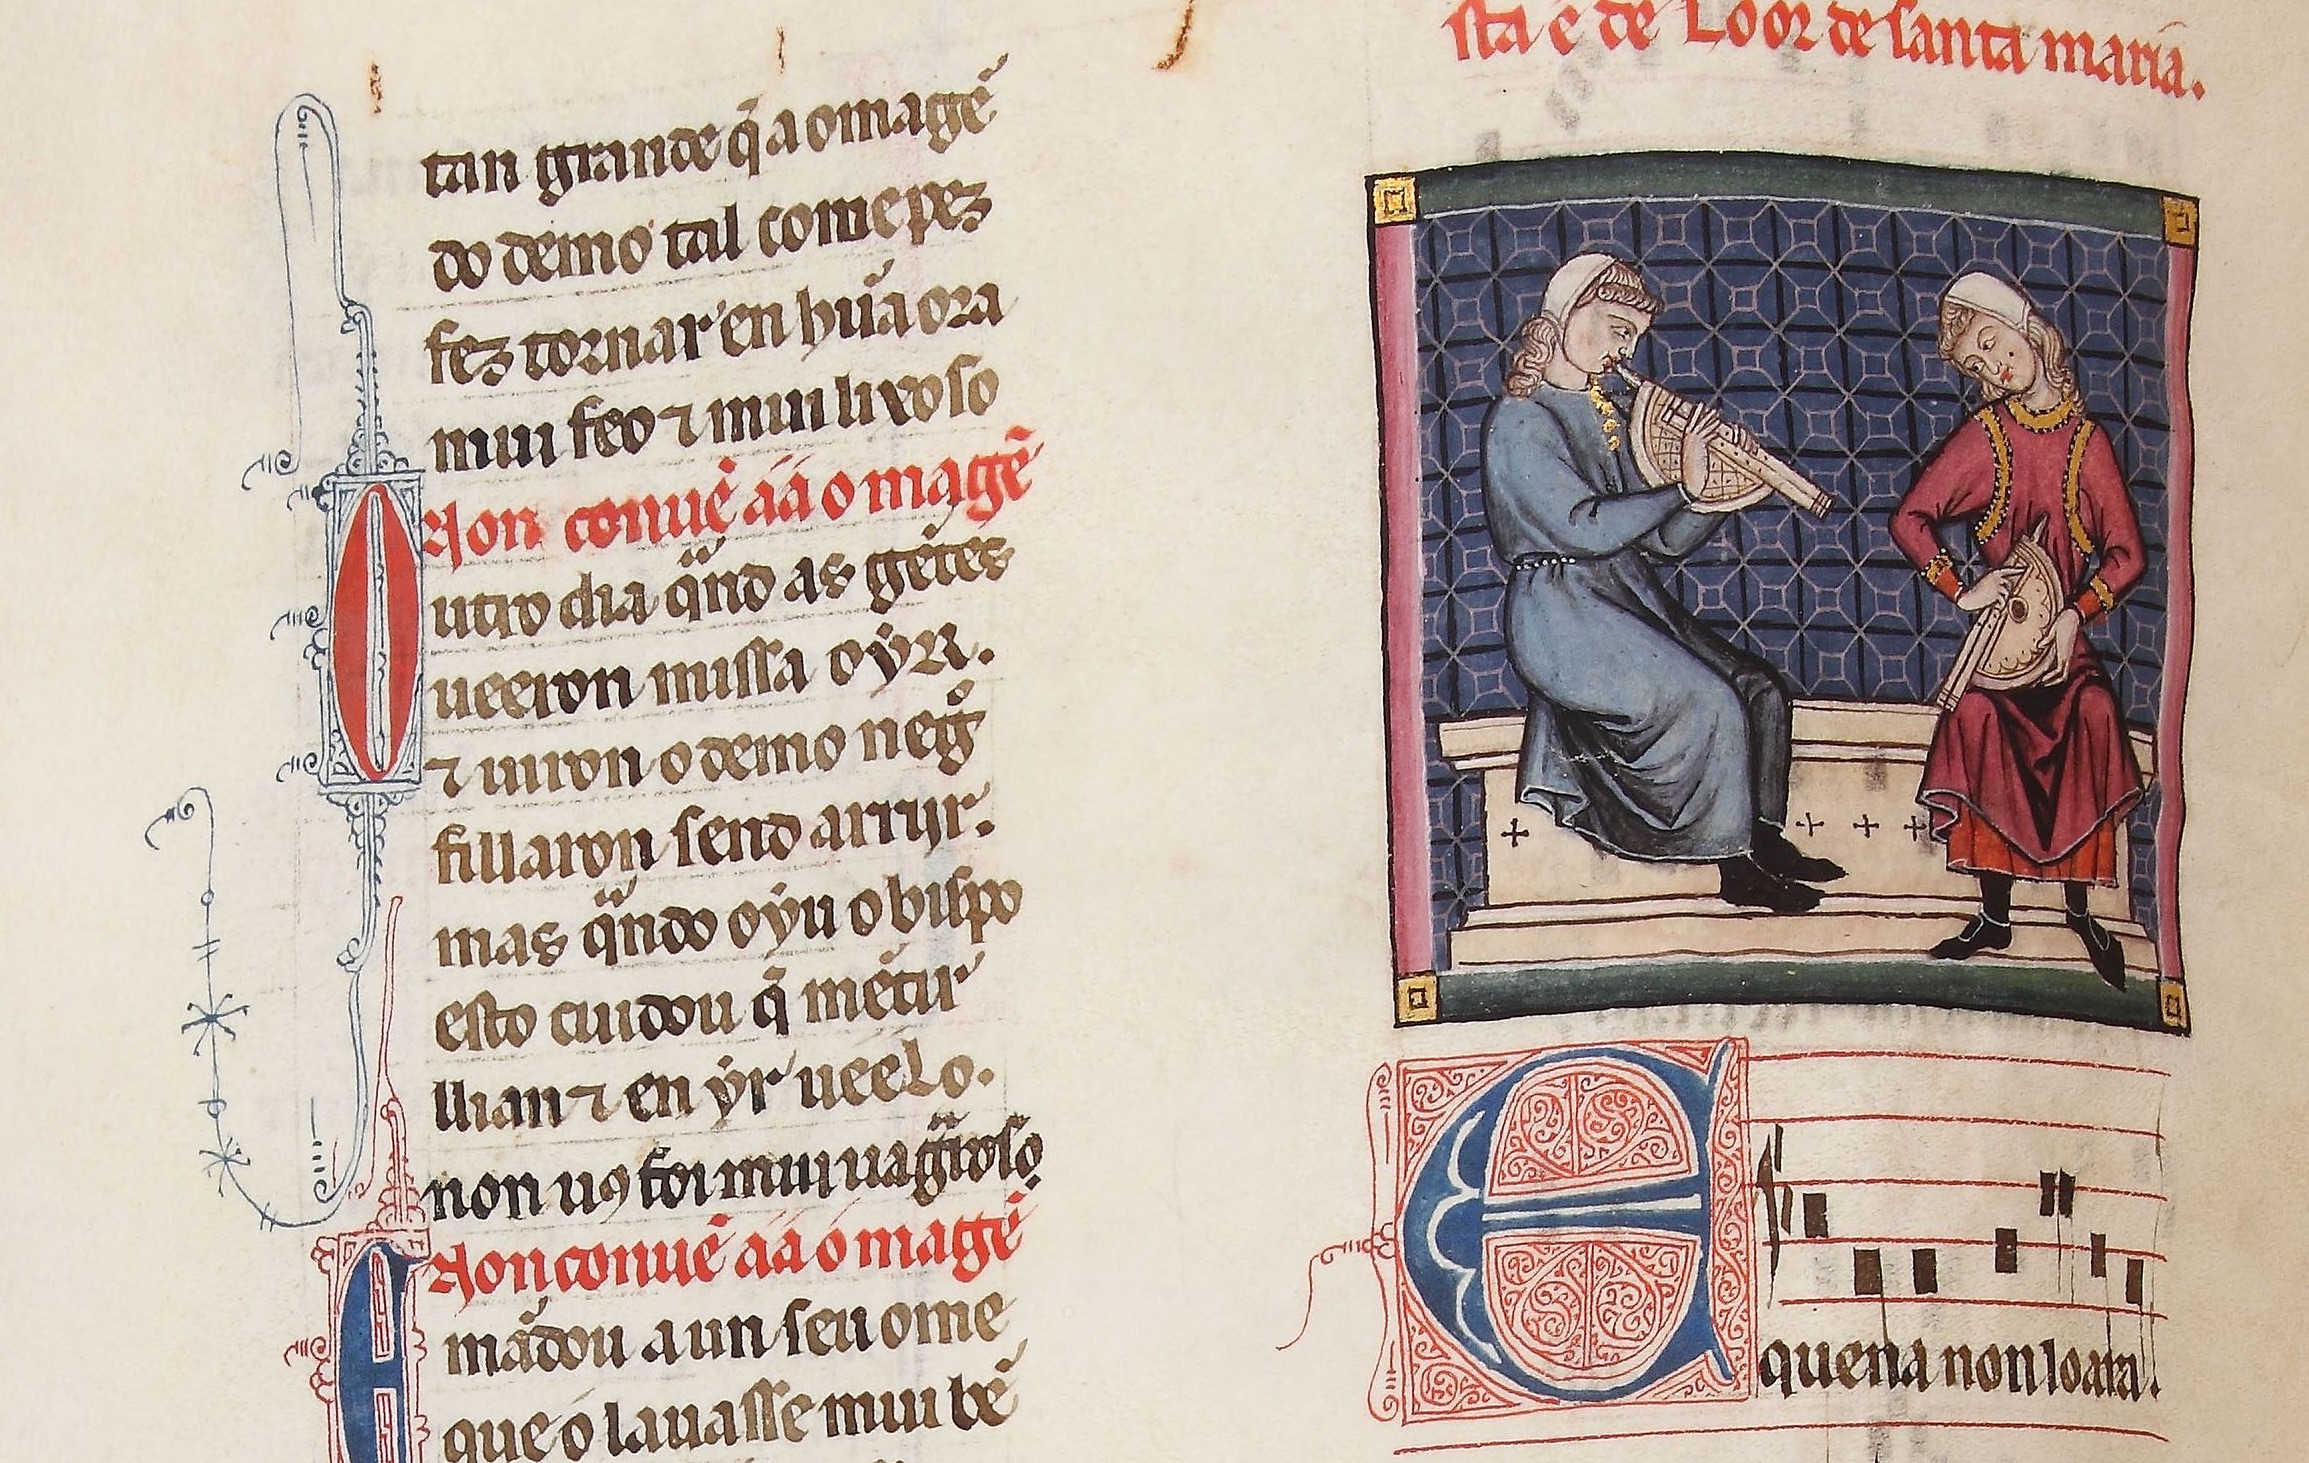 tan grande q̃ a omagẽ
do demo tal come pez
fez tornar en hũa ora
mui feo ⁊ mui lixoso
Non conuẽ aá omagẽ
Outro dia qn̈do as gẽtes
ueeron missa oyr.
⁊ uiron o demo negͦ
fillaron send a rriir.
mas qn̈do oyu o bispo
esto cuidou q̃ mẽtir
llian ⁊ en yr ueelo.
non uꝯ foi mui uagᵃroso
Non conuẽ aá omagẽ
E mãdou a un seu ome
que o lauasse mui bẽ
sta é de Loor de santa maria.
E quena non loara.